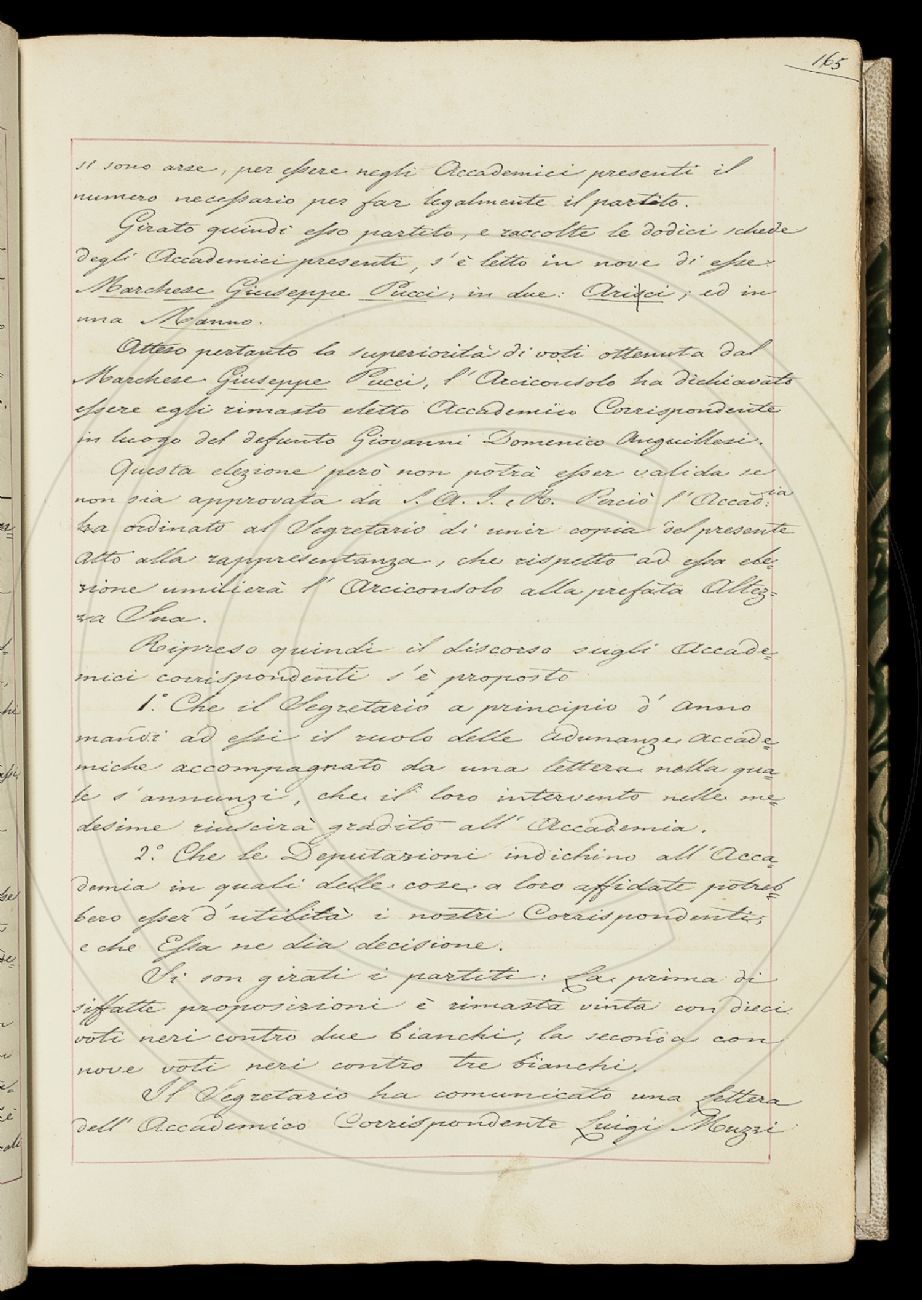 165
si sono arse, per essere negli Accademici presenti il
numero necessario per far legalmente il partito.
Girato quindi esso partito, e raccolte le dodici schede
degli Accademici presenti, s'è letto in nove di esse
Marchese Giuseppe Pucci; in due: Arisci; ed in
una Manno.
Atteso pertanto la superiorità di voti ottenuta dal
Marchese Giuseppe Pucci, l'Arciconsolo ha dichiarato
essere egli rimasto eletto Accademico Corrispondente
in luogo del defunto Giovanni Domenico Anguillesi.
Questa elezione però non potrà esser valida se
non sia approvata da S. A. I. e R. Perciò l'Accad:ia
ha ordinato al Segretario di unir copia del presente
atto alla rappresentanza, che rispetto ad essa ele=
zione umilierà l'Arciconsolo alla prefata Altez=
za Sua.
Ripreso quindi il discorso sugli Accade=
mici corrispondenti s'è proposto
1.° Che il Segretario a principio d'anno
mandi ad essi il ruolo delle adunanze accade=
miche accompagnato da una lettera nella qua=
le s'annunzi, che il loro intervento nelle me=
desime riuscirà gradito all'Accademia.
2.° Che le Deputazioni indichino all'Acca
demia in quali delle cose a loro affidate potreb=
bero esser d'utilità i nostri Corrispondenti;
e che Essa ne dia decisione.
Si son girati i partiti: La prima di
siffatte proposizioni è rimasta vinta con dieci
voti neri contro due bianchi, la seconda con
nove voti neri contro tre bianchi.
Il Segretario ha comunicato una lettera
dell'Accademico Corrispondente Luigi Muzzi